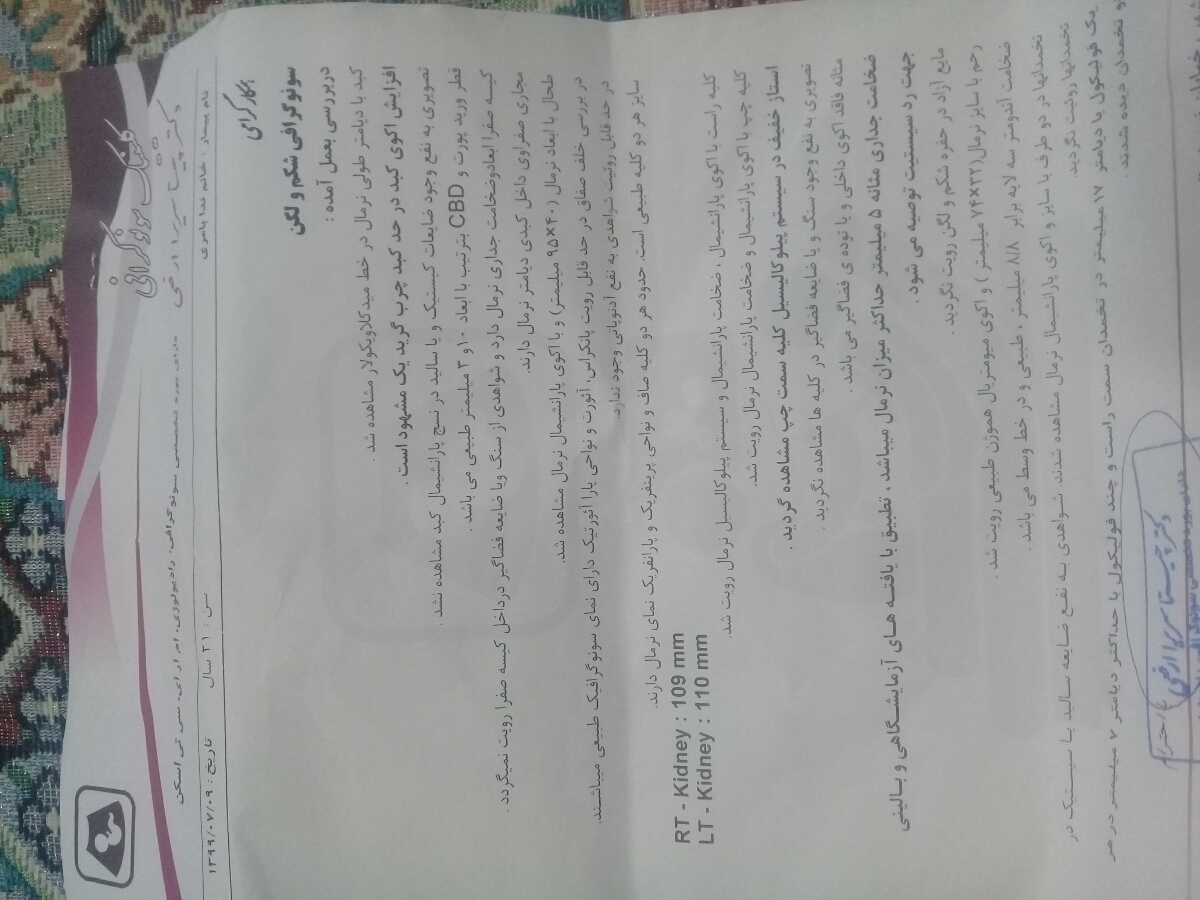 کلینیک سونوگرافی
دکتر چیستا سیرا ارضی
دارای بورد تخصصی سونوگرافی، رادیولوژی، ام آر ای، سی تی اسکن
نام بیمار : خانم ندا یامری سن : ۲۱ سال تاریخ : ۱۳۹۹/۰۷/۰۹
همکار گرامی
سونوگرافی شکم و لگن
در بررسی بعمل آمده :
کبد با دیامتر طولی نرمال در خط میدکلاویکولار مشاهده شد .
افزایش اکوی کبد در حد کبد چرب گرید یک مشهود است .
تصویری به نفع وجود ضایعات کیستیک و یا سالید در نسج پارانشیمال کبد مشاهده نشد .
قطر ورید پورت و CBD بترتیب با ابعاد ۱۰ و ۳ میلیمتر طبیعی می باشد .
کیسه صفرا ابعادوضخامت جداری نرمال دارد و شواهدی از سنگ ویا ضایعه فضاگیر درداخل کیسه صفرا رویت نمیگردد .
مجاری صفراوی داخل کبدی دیامتر نرمال دارند.
طحال با ابعاد نرمال (۴۰×۹۵ میلیمتر) و با اکوی پارانشیمال نرمال مشاهده شد.
در بررسی خلف صفاق در حد قابل رویت پانکراس، آئورت و نواحی پارا آئورتیک دارای نمای سونوگرافیک طبیعی میباشند.
در حد قابل روئیت شواهدی به نفع آدنوپاتی وجود ندارد.
سایز هر دو کلیه طبیعی است. حدود هر دو کلیه صاف و نواحی پرینفریک و پارانفریک نمای نرمال دارند.
RT - Kidney : 109 mm
LT - Kidney : 110 mm
کلیه راست با اکوی پارانشیمال ، ضخامت پارانشیمال و سیستم پیلوکالیسیل نرمال رویت شد.
کلیه چپ با اکوی پارانشیمال و ضخامت پارانشیمال نرمال رویت شد.
استاز خفیف در سیستم پیلوکالیسیل کلیه سمت چپ مشاهده گردید .
تصویری به نفع وجود سنگ و یا ضایعه فضاگیر در کلیه ها مشاهده نگردید .
مثانه فاقد اکوی داخلی و یا توده ی فضاگیر می باشد .
ضخامت جداری مثانه ۵ میلیمتر حداکثر میزان نرمال میباشد ، تطبیق با یافته های آزمایشگاهی و بالینی
جهت رد سیستیت توصیه می شود .
مایع آزاد در حفره شکم و لگن رویت نگردید .
رحم با سایز نرمال(۳۲×۷۴ میلیمتر ) و اکوی میومتریال هموژن طبیعی رویت شد .
ضخامت آندومتر سه لایه برابر ۸/۸ میلیمتر ، طبیعی و در خط وسط می باشد .
تخمدانها در دو طرف با سایز و اکوی پارانشیمال نرمال مشاهده شدند. شواهدی به نفع ضایعه سالید یا سیستیک در
تخمدانها روئیت نگردید
یک فولیکول با دیامتر ۱۷ میلیمتر در تخمدان سمت راست و چند فولیکول با حداکثر دیامتر ۷ میلیمتر در هر
دو تخمدان دیده شدند .
دکتر چیستا سیرا ارضی